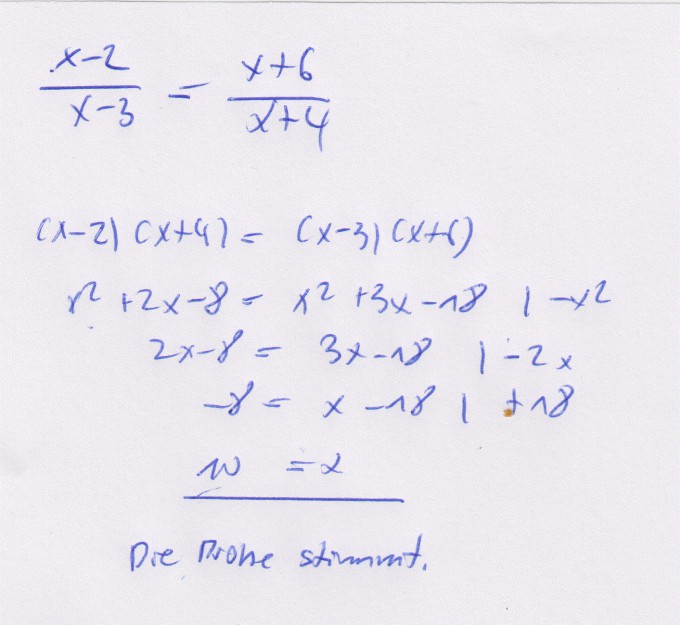 x-2 / x-3 = x+6 / x+4
(x-2) (x+4) = (x-3) (x+6)
x² +2x-8 = x² +3x-18 | -x²
2x-8 = 3x-18 | -2x
-8 = x -18 | +18
10 = x
Die Probe stimmt.